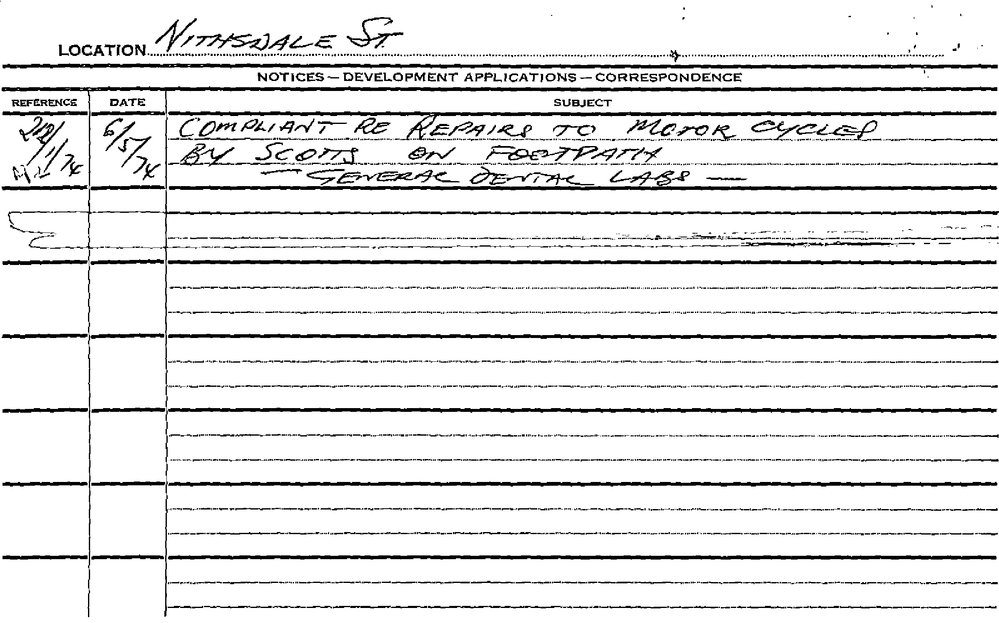 LOCATION NITHSDALE ST.
NOTICES — DEVELOPMENT APPLICATIONS — CORRESPONDENCE
REFERENCE DATE SUBJECT
6/5/74 COMPLIANT RE REPAIRS TO MOTOR CYCLES
BY SCOTTS ON FOOTPATH
— GENERAL DENTAL LABS —